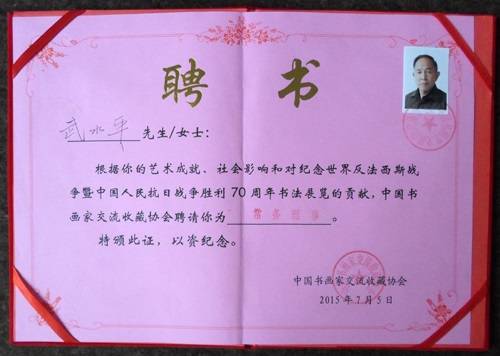 聘 书
武水平 先生/女士：
根据你的艺术成就、社会影响和对纪念世界反法西斯战
争暨中国人民抗日战争胜利70周年书法展览的贡献，中国书
画家交流收藏协会聘请你为 常务理事 。
特颁此证，以资纪念。
中国书画家交流收藏协会
2015年7月5日